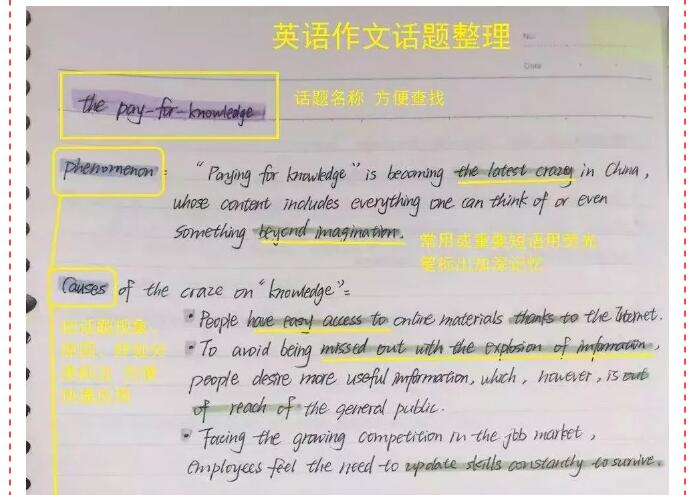 英语作文话题整理
No:
Date
the pay-for-knowledge
话题名称 方便查找
phenomenon: "Paying for knowledge" is becoming the latest crazy in China,
whose content includes everything one can think of or even
something beyond imagination.
常用或重要短语用荧光
笔标出加深记忆
Causes of the craze on "knowledge":
• People have easy access to online materials thanks to the Internet.
• To avoid being missed out with the explosion of information,
people desire more useful information, which, however, is out
of reach of the general public.
• Facing the growing competition in the job market,
employees feel the need to update skills constantly to survive.